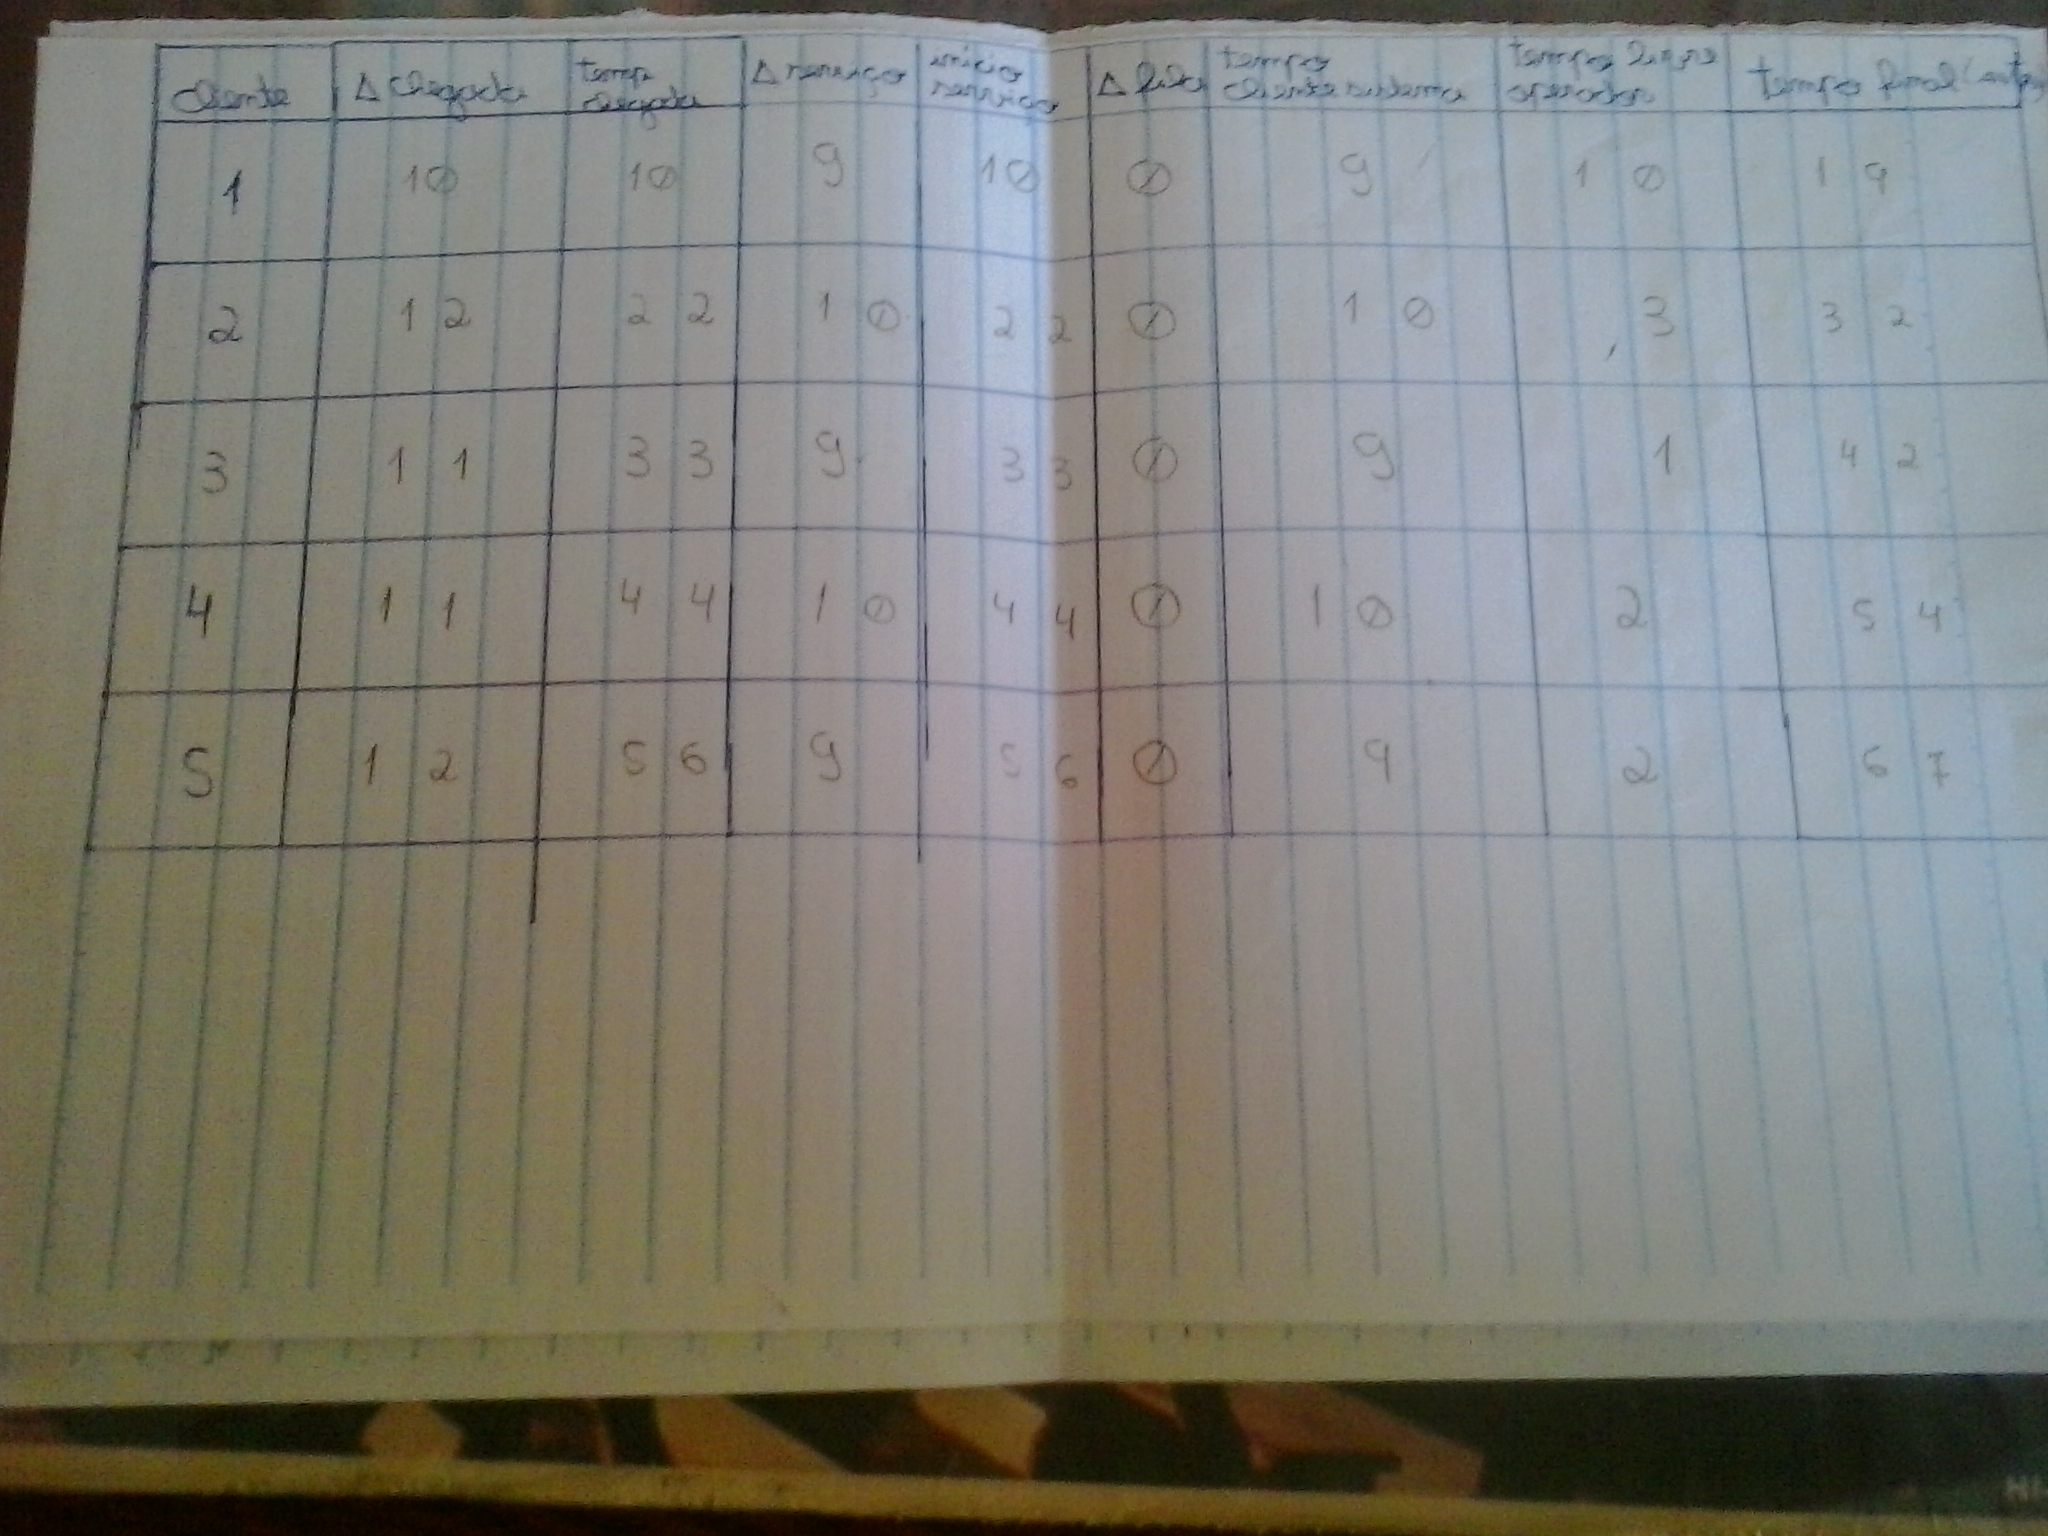 Cliente Δ chegada tempo chegada Δ serviço inicio serviço Δ fila tempo cliente sistema tempo livre operador tempo final
1 10 10 9 10 0 9 10 19
2 12 22 10 22 0 10 3 32
3 11 33 9 33 0 9 1 42
4 11 44 10 44 0 10 2 54
5 12 56 9 56 0 9 2 67